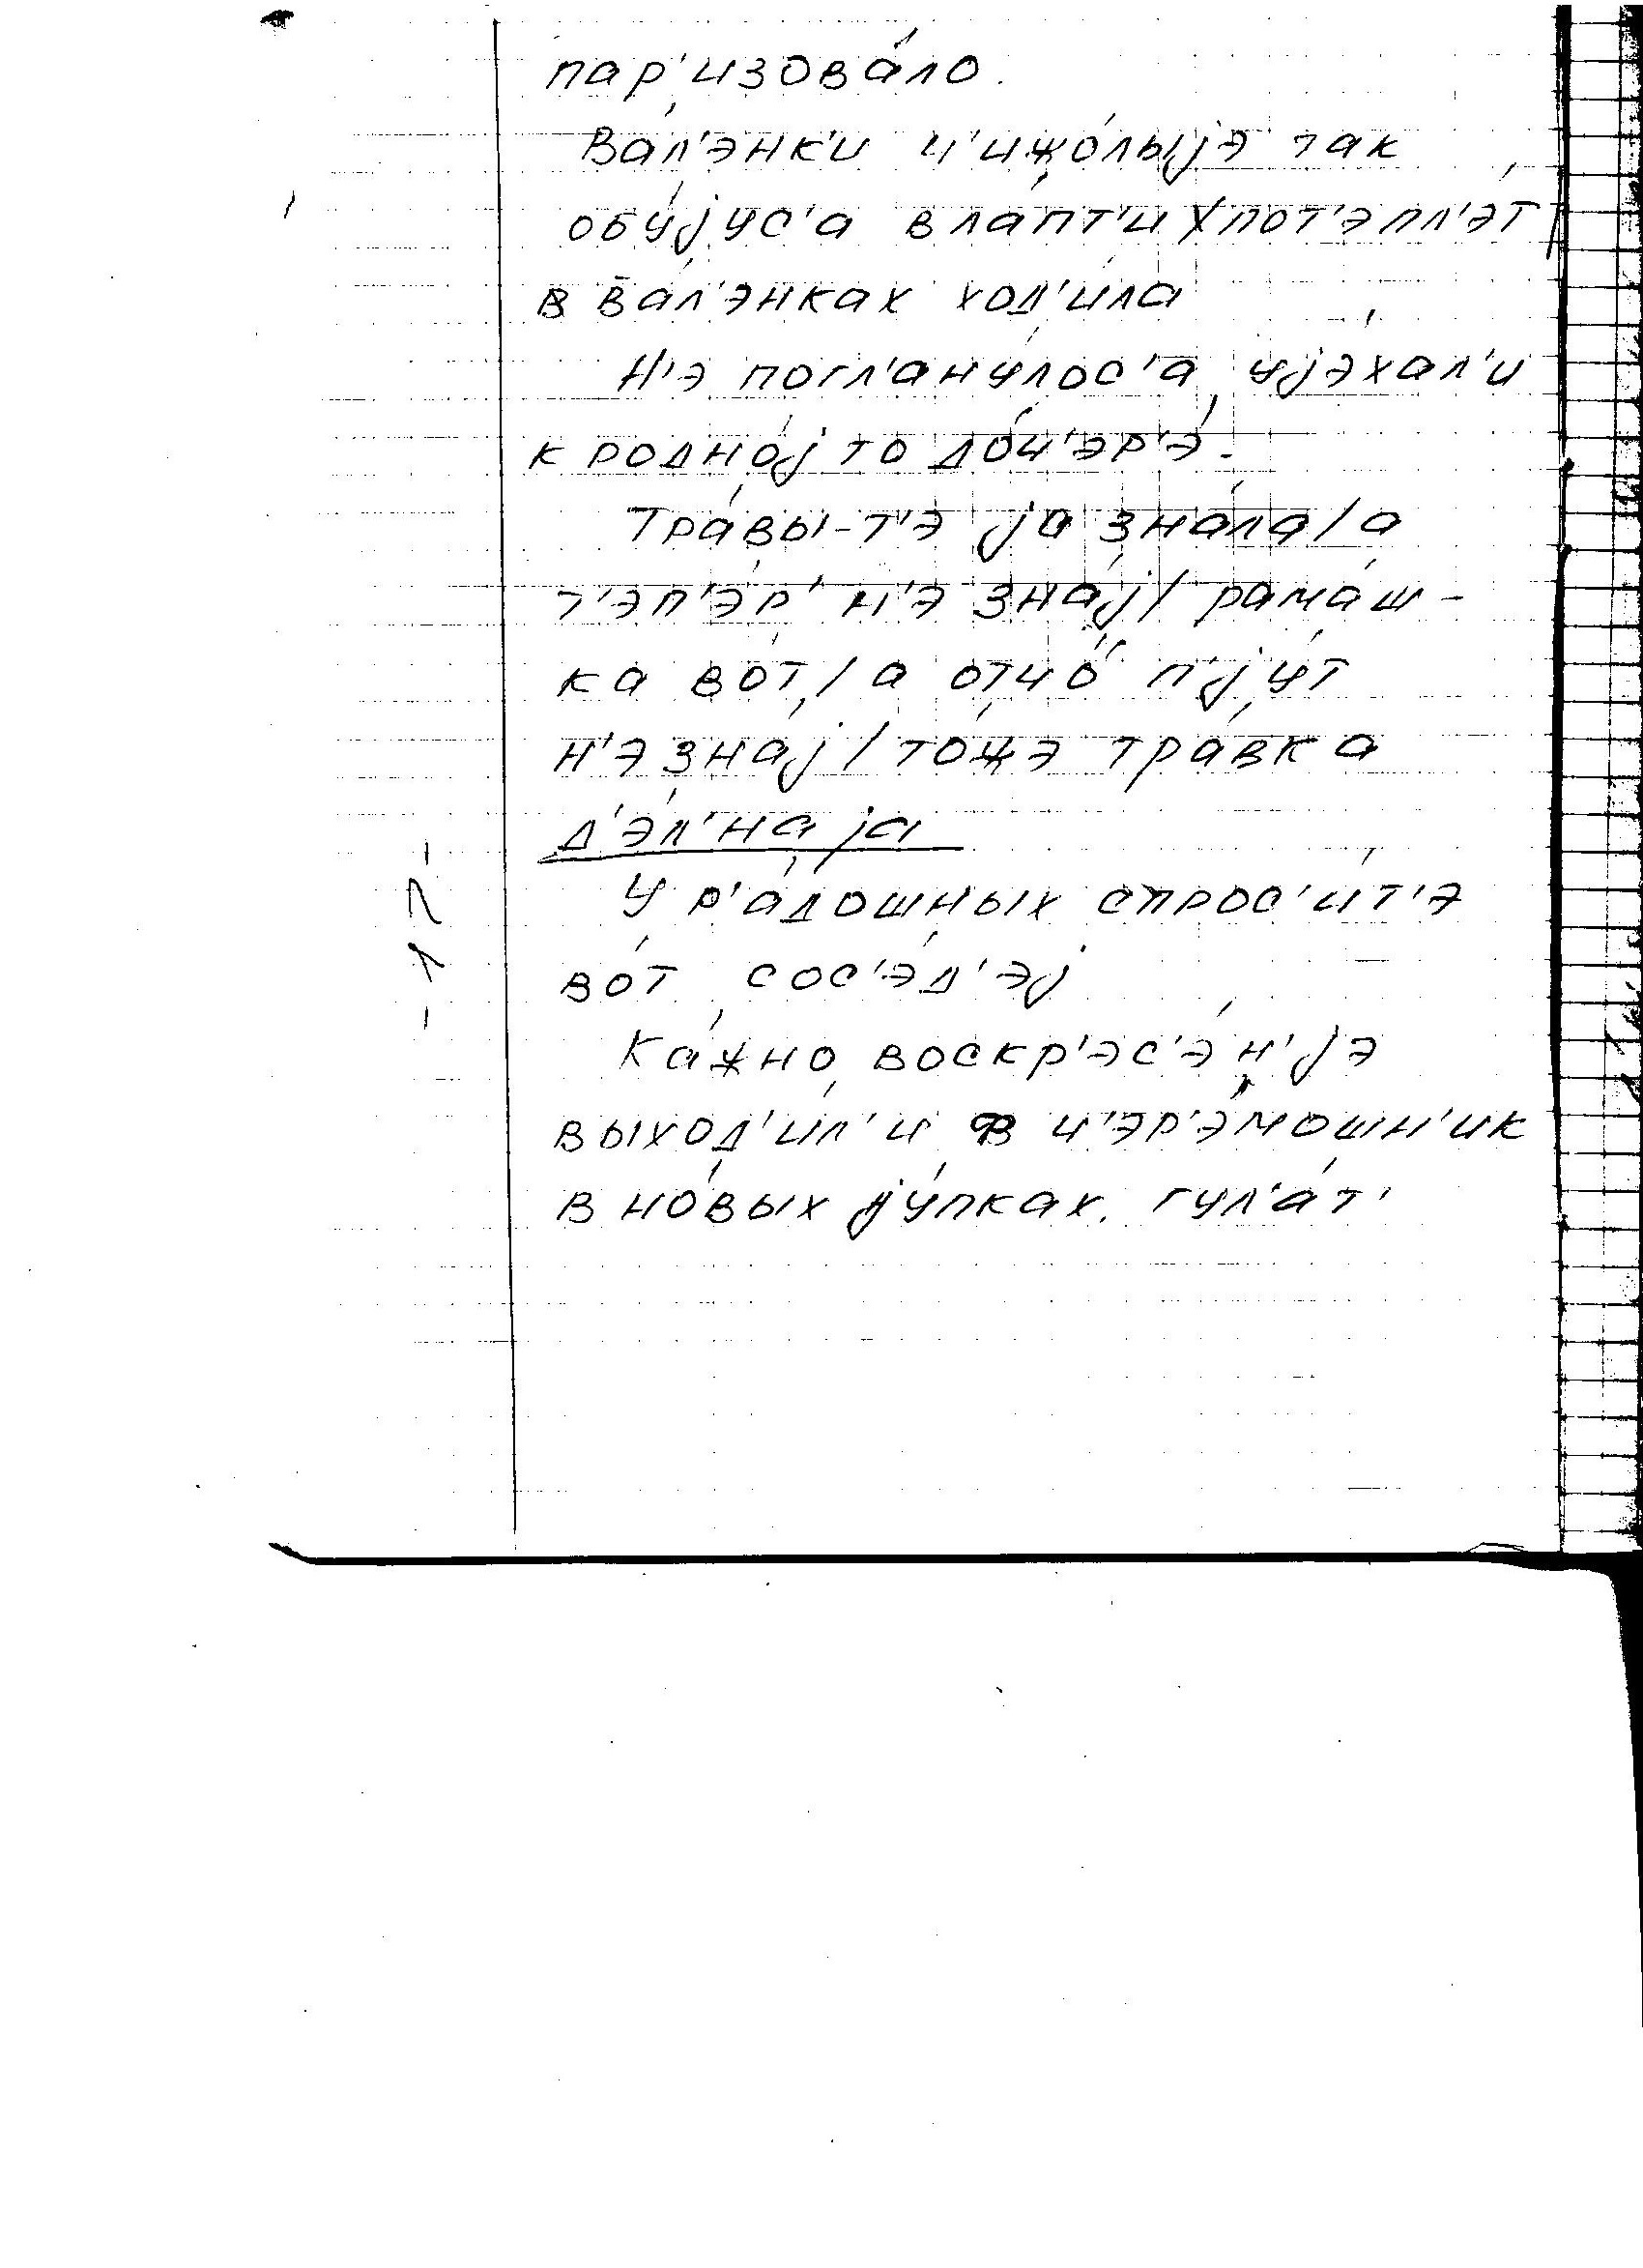 пар'изова́ло.
Ва́л'энк'и ч'ижо́лыjэ так
обу́jус'а в ла́пт'и / пот'эпл'э́т /
в ва́л'энках ход'и́ла
Н'э погл'ану́лос'а уjэ́хал'и
к родно́j то до́ч'эр'э́.
Тра́вы-т'э jа зна́ла/а
т'эп'э́р' н'э зна́j/ рама́ш-
ка во́т/а отчо́ п'jу́т
н'э зна́j/то́жэ тра́вка
д'э́л'наjа
У р'а́дошных спрос'и́т'э
во́т сос'э́д'эj
Ка́жно воскр'эс'э́н'jэ
выход'и́л'и в ч'эр'э́мошн'ик
в но́вых jу́пках. гул'а́т'
-17-